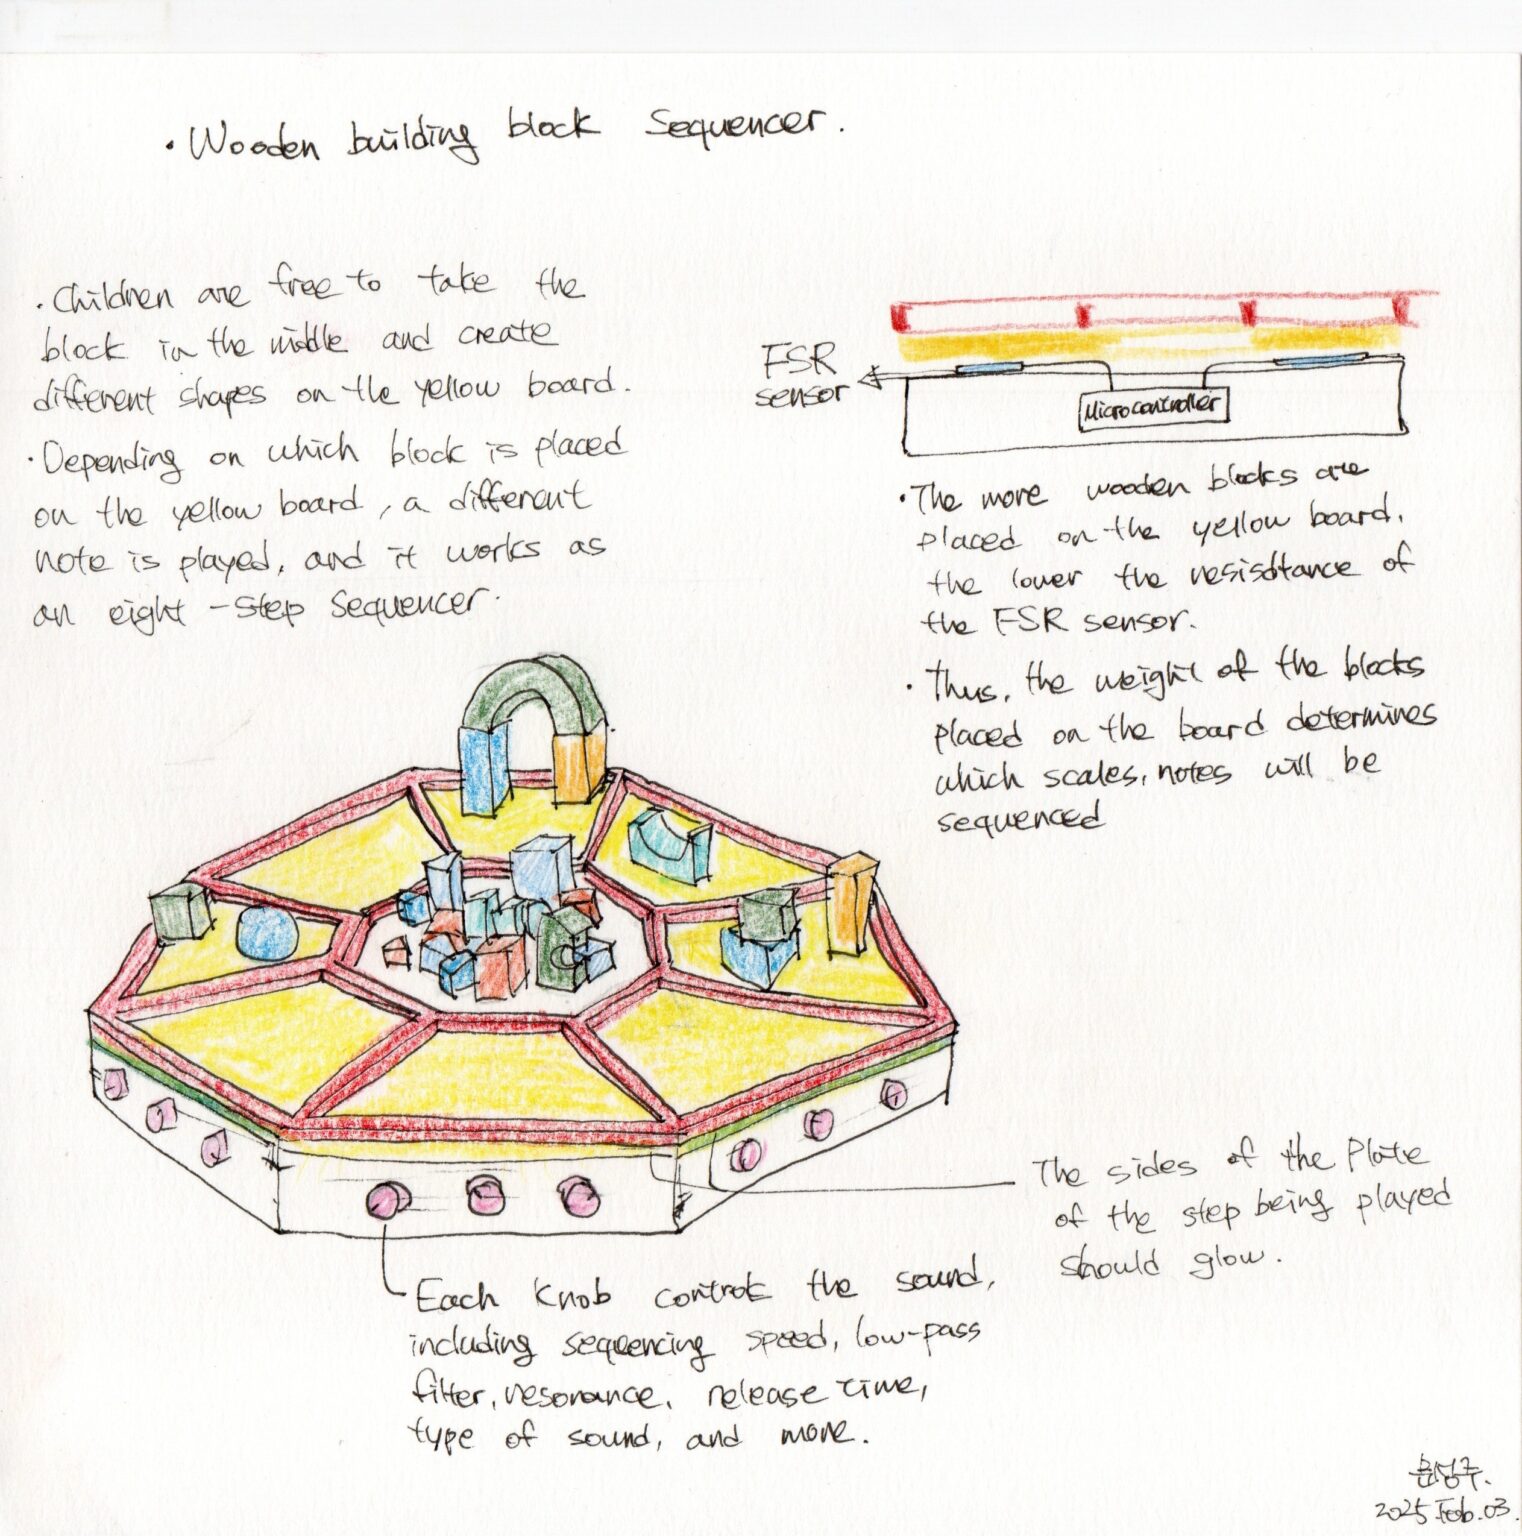 · Wooden building block Sequencer.
· Children are free to take the
block in the middle and create
different shapes on the yellow board.
· Depending on which block is placed
on the yellow board, a different
note is played, and it works as
an eight-step sequencer.
FSR
sensor
Microcontroller
· The more wooden blocks are
placed on the yellow board,
the lower the resisdtance of
the FSR sensor.
· Thus, the weight of the blocks
placed on the board determines
which scales, notes will be
sequenced
The sides of the Plate
of the step being played
should glow.
Each knob controls the sound,
including sequencing speed, low-pass
filter, resonance, release time,
type of sound, and more.
윤성주.
2025 Feb. 03.